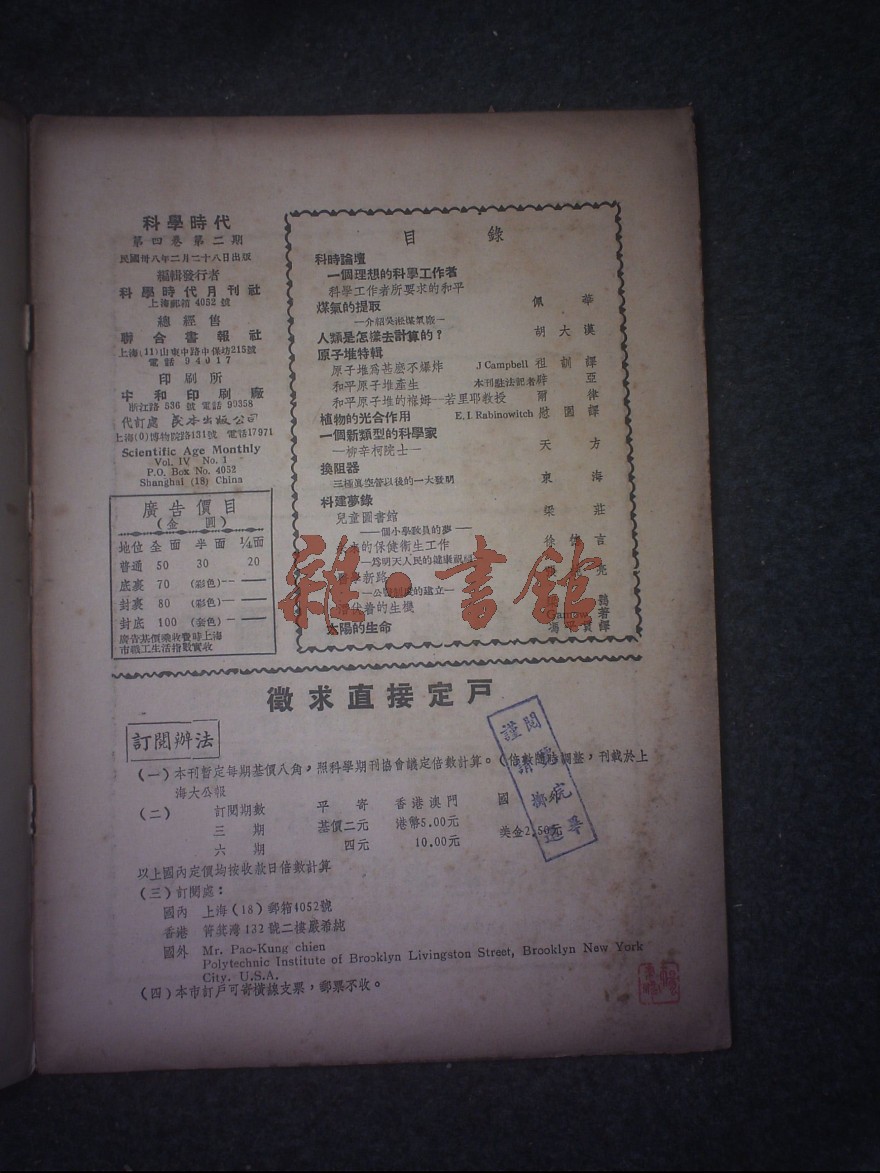 科學時代
第四卷第二期
民國卅八年二月二十八日出版
編輯發行者
科學時代月刊社
上海郵箱4052號
總經售
聯合書報社
上海(11)山東中路中保坊215號
電話94017
印刷所
中和印刷廠
浙江路536號 電話90358
代訂處
上海(0)博物院路131號 電話17971
Scientific Age Monthly
Vol. IV No. 1
P.O. Box No. 4052
Shanghai (18) China
廣告價目
(金圓)
地位 全面 半面 ¼面
普通 50 30 20
底裏 70 (彩色)
封裏 80 (彩色)
封底 100 (套色)
廣告基價乘收費時上海
市職工生活指數實收
目錄
科時論壇
一個理想的科學工作者
科學工作者所要求的和平
煤氣的提取 佩華
—介紹吳淞煤氣廠—
人類是怎樣去計算的? 胡大漢
原子堆特輯
原子堆爲甚麽不爆炸 J Campbell 祖訓譯
和平原子堆產生 本刊駐法記者 亞
和平原子堆的褓姆—若里耶教授 爾偉
植物的光合作用 E. I. Rabinowitch 慰園譯
一個新類型的科學家
—柳辛柯院士— 天方
換阻器
三極眞空管以後的一大發明 東海
料建夢錄
兒童圖書館 梁莊
——個小學教員的夢——
的保健衛生工作 徐 言
—爲明天人民的健康
學新路
—公 的建立—
伏着的生機
太陽的生命 Gamow著
譯
雜·書館
徵求直接定戸
訂閱辦法
(一)本刊暫定每期基價八角,照科學期刊協會議定倍數計算。(倍數隨時調整,刊載於上
海大公報
(二) 訂閱期數 平寄 香港澳門 國
三期 基價二元 港幣5.00元 美金2.50元
六期 四元 10.00元
以上國內定價均按收款日倍數計算
(三)訂閱處:
國內 上海(18)郵箱4052號
香港 筲箕灣132號二樓嚴希純
國外 Mr. Pao-Kung chien
Polytechnic Institute of Brooklyn Livingston Street, Brooklyn New York
City. U.S.A.
(四)本市訂戸可寄橫線支票,郵票不收。